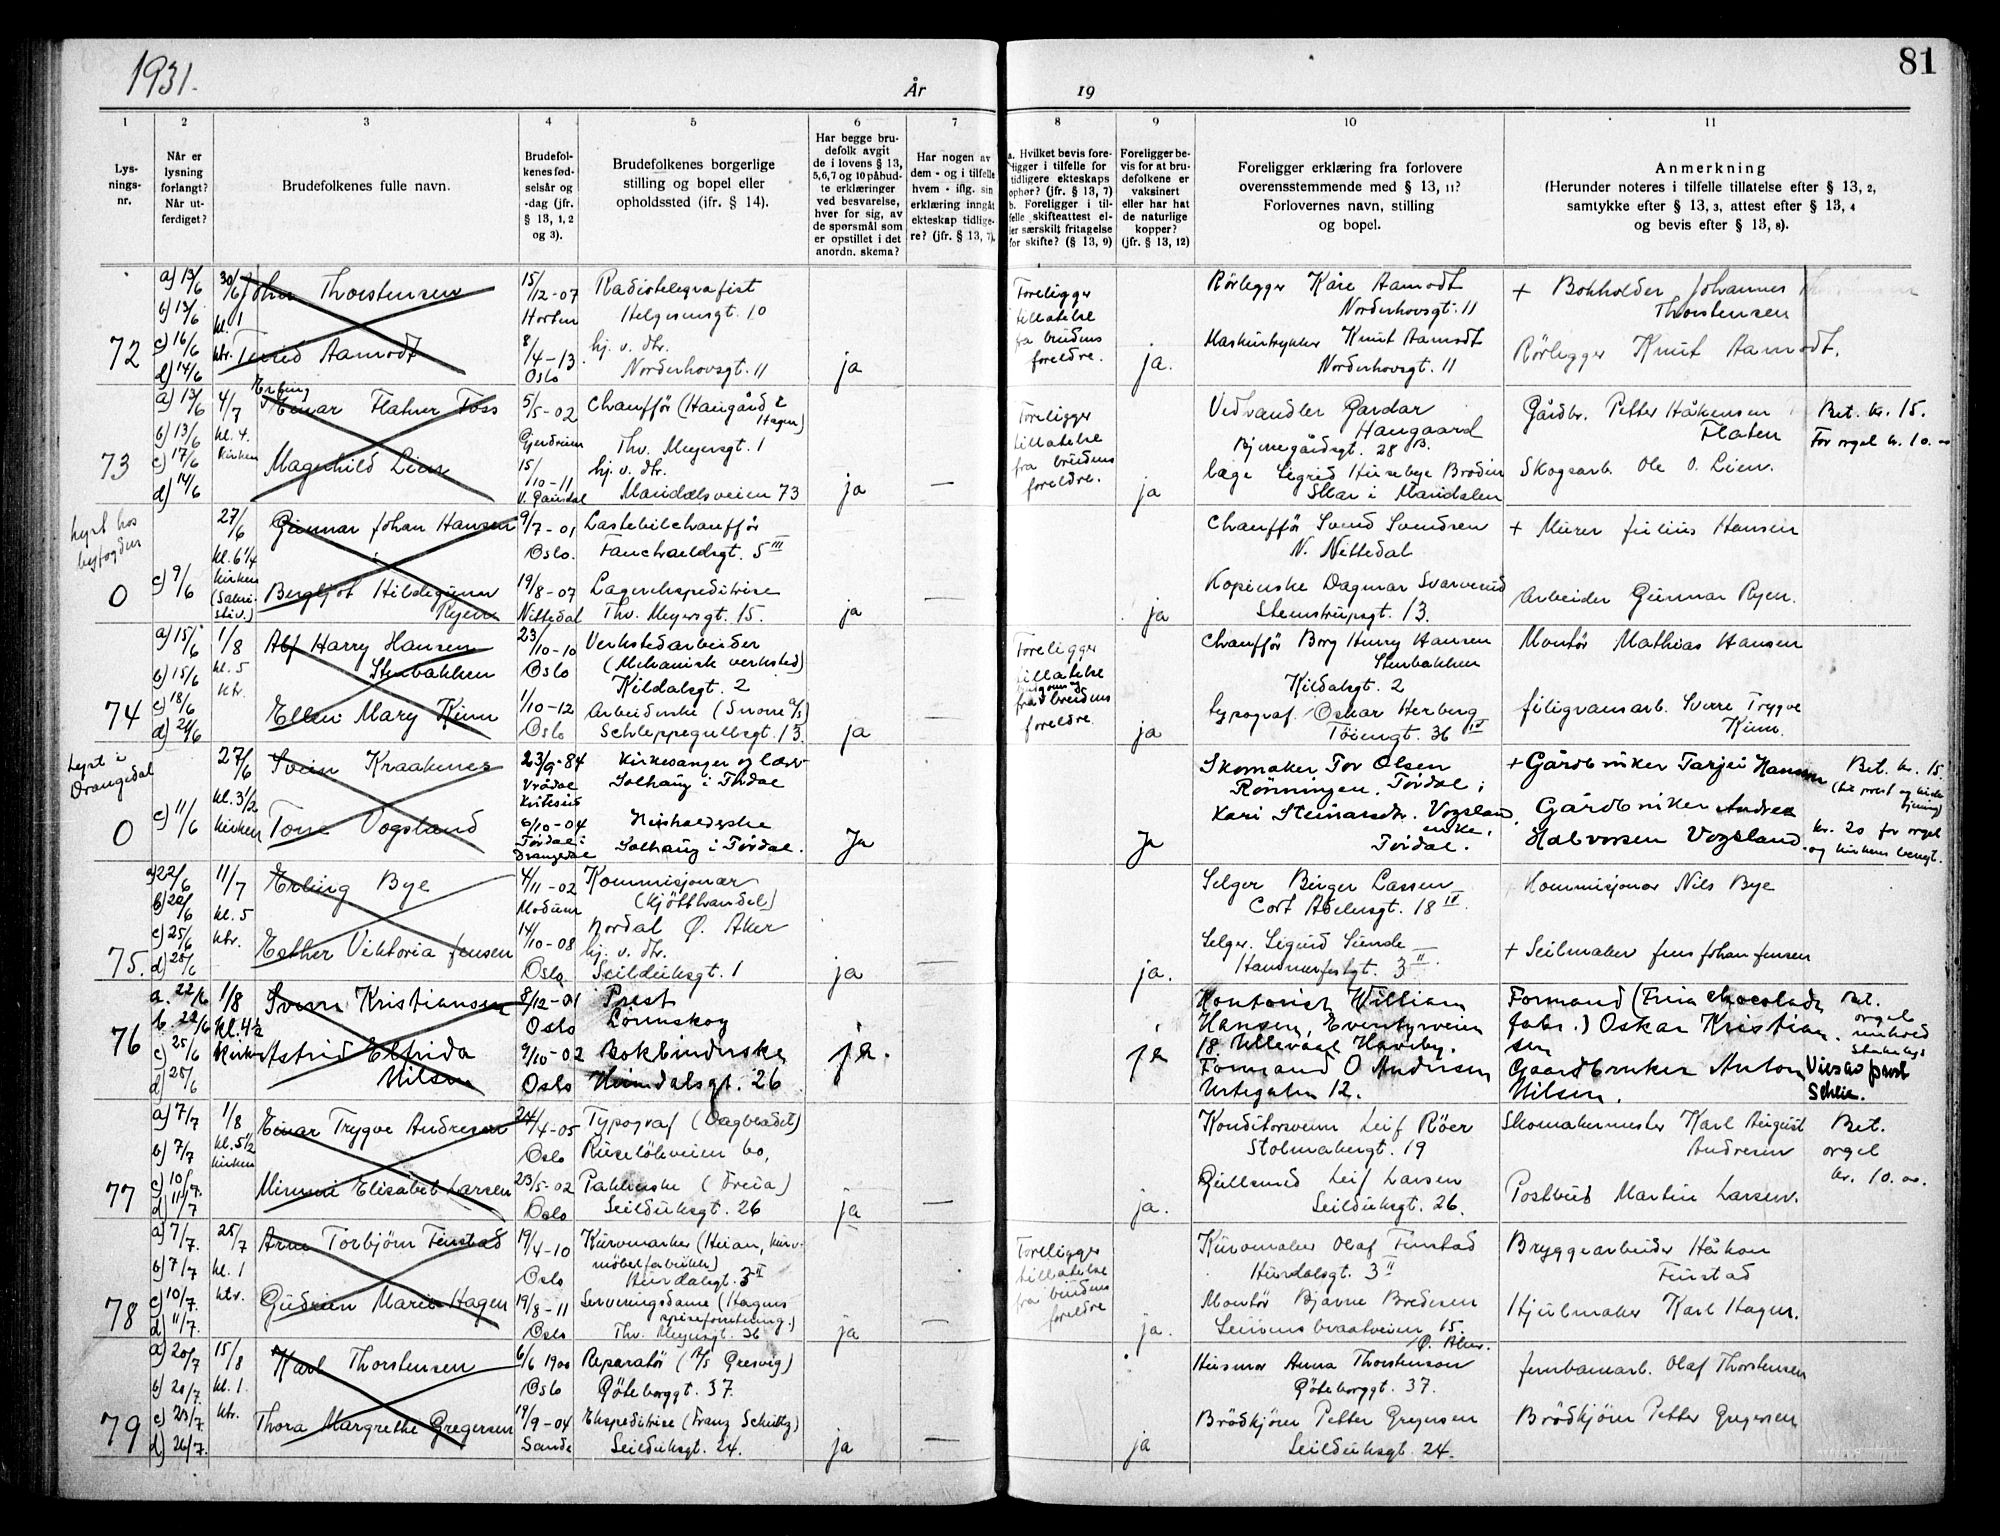 1931.
År
19
81
1
2
3
4
5
6
7
8
9
10
11
Lys-
nings-
nr.
Når er
lysning
forlangt?
Når ut-
ferdiget?
Brudefolkenes fulle navn.
Brudefol-
kenes fød-
selsår og
-dag (jfr.
§ 13, 1, 2
og 3).
Brudefolkenes borgerlige
stilling og bopel eller
opholdssted (ifr. § 14).
Har begge bru-
defolk avgit
de i lovens § 13,
5,6,7 og 10 påbud-
te erklæringer
ved besvarelse,
hver for sig, av
de spørsmål som
er opstillet i det
anordn. skema?
Har nogen av
dem - og i tilfelle
hvem - iflg. sin
erklæring inngått
ekteskap tidlige-
re? (jfr. § 13, 7).
a. Hvilket bevis fore-
ligger i tilfelle for
tidligere ekteskaps
ophør? (jfr. § 13, 7)
b. Foreligger i til-
felle skifteattest el-
ler særskilt fritagelse
for skifte? (§ 13, 9)
Foreligger be-
vis for at bru-
defolkene er
vaksinert
eller har hat
de naturlige
kopper?
(jfr. § 13, 12)
Foreligger erklæring fra forlovere
overensstemmende med § 13, 11?
Forlovernes navn, stilling
og bopel.
Anmerkning
(Herunder noteres i tilfelle tillatelse efter § 13, 2,
samtykke efter § 13, 3, attest efter § 13, 4
og bevis efter § 13, 8).
72
a) 13/6
b) 13/6
c) 16/6
d) 14/6
30/6
kl. 1
ktr.
John Thorstensen
Aamodt
15/12-07
Horten
8/4-13
Oslo
Radiotelegrafist
Helgesensgt. 10
hj. v. dr.
Norderhovsgt. 11
ja
Foreligger
tillatelse
fra brudens
foreldre.
ja.
Rørlegger Kåre Aamodt
Norderhovsgt. 11
Maskintrykker Knut Aamodt
Norderhovsgt. 11
+ Bokholder Johannes
Thorstensen
Rørlegger Knut Aamodt.
73
a) 13/6
b) 13/6
c) 17/6
d) 14/6
4/7
kl. 4.
kirken
Erling
Einar Flaten Foss
Magnhild Lien
5/5-02
Gjerdrum
15/10-11
Chauffør (Haugård &
Hagen)
Thv. Meyersgt. 1
hj. v. dr.
Maridalsveien 73
ja
—
Foreligger
tillatelse
fra brudens
foreldre.
ja
Vedhandler Gardar
Haugaard
Bjerregårdsgt. 28 B.
Skar i Maridalen
Gårdbr. Petter Håkensen
Flaten
Skogsarb. Ole O. Lien.
Bet. kr. 15.
For orgel kr. 10.00
lyst hos
byfogden
0
c) 9/6
27/6
kl. 6 1/4
kirken
Gunnar Johan Hansen
Bergljot Hildegunn
Ryen
9/7-01
Oslo.
19/8-07
Nittedal
Lastebilchauffør
Fauchaldsgt. 5 III
Lagerekspeditrise
Thv. Meyersgt. 15.
ja
ja
Chauffør Svend Svendsen
N. Nittedal
Stenstrupgt. 13.
+ Murer Julius Hansen
Arbeider Gunnar Ryen.
74
a) 15/6
b) 15/6
c) 18/6
d) 24/6
1/8
kl. 5
ktr.
Alf Harry Hansen
Stenbakken
Ellen Mary Kinn
23/10-10
Oslo
1/10-12
Oslo
Verkstedarbeider
(Mekanisk verksted)
Kildalsgt. 2
Schleppegrellsgt. 13.
ja
—
Foreligger
tillatelse
fra brudens
foreldre.
ja
Chauffør Borg Henry Hansen
Stenbakken
Kildalsgt. 2
Typograf Oskar Herberg
Tøiengt. 36 IV
Montør Mathias Hansen
filigransarb. Sverre Trygve
Kinn.
Lyst i
Drangedal
0
c) 11/6
27/6
kl. 3 1/2
kirken
Svein Kraakenes
Tone Vogsland
23/9-84
6/10-04
Tørdal i
Drangedal
Kirkesanger og lærer
Solhaug i Tørdal
Husholderske
Solhaug i Tørdal.
Ja
Ja
Skomaker Tov Olsen
Rønningen, Tørdal;
Kari Steinarsdr. Vogsland,
enke,
Tørdal.
+ Gårdbruker Tarjei Hansen
Gårdbruker Andrea
Halvorsen Vogsland.
Bet. kr. 15
kr. 20 for orgel
75.
a) 22/6
b) 22/6
c) 25/6
d) 25/6
11/7
kl. 5
ktr.
Erling Bye
Esther Viktoria Jensen
4/11-02
Modum
14/10-08
Oslo
Kommisjonær
(kjøtthandel)
Nordal Ø. Aker
hj. v. dr.
Seilduksgt. 1
ja
—
ja.
Selger Birger Lassen
Cort Adelersgt. 18 IV.
Selger. Sigurd Sunde
Hammerfestgt. 3 II.
Kommisjonær Nils Bye
+ Seilmaker Jens Johan Jensen
76
a. 22/6
b. 22/6
c) 25/6
d) 25/6
1/8
kl. 4 1/2
Kirken
Svenn Kristiansen
Astrid Elfrida
Nilsen
8/12-01
Oslo
9/10-02
Oslo
Prest
Lørenskog
Bokbinderske
Heimdalsgt. 26
ja.
ja
Kontorist William
Hansen, Eventyrveien
18. Ullevaal Haveby.
Formand O Andersen
Urtegaten 12.
Formand (Freia Chocolade
fabr.) Oskar Kristian-
sen
Gaardbruker Anton
Nilsen.
Bet.
orgel
Vies av prest
Schlie.
77
a) 7/7
b) 7/7
c) 10/7.
d) 11/7
1/8
kl. 5 1/2
kirken
Einar Trygve Andresen
Minni Elisabet Larsen
24/4-05
Oslo
23/5-02
Oslo
Typograf (Dagbladet)
Ruseløkveien 60,
Pakkerske (Freia)
Seilduksgt. 26
ja
—
ja.
Konditorsvenn Leif Røer
Stolmakergt. 19
Gullsmed Leif Larsen
Seilduksgt. 26.
Skomakermester Karl August
Andresen
Postbud Martin Larsen.
Bet.
orgel
kr. 10.00.
78
a) 7/7.
b) 7/7
c) 10/7.
d) 11/7.
25/7
kl. 1
ktr.
Arne Torbjørn Finstad
Gudrun Marie Hagen
19/4-10
Oslo
19/8-11
Oslo
Kurvmaker (Huan, kurv-
møbelfabrikk)
Hurdalsgt. 3 II
Serveringsdame (Hagens
spiseforretning.)
Thv. Meyersgt. 36
ja
—
Foreligger
tillatelse
fra brudens
foreldre
ja.
Kurvmaker Olaf Finstad
Hurdalsgt. 3 II
Montør Bjarne Bredesen
15.
Ø. Aker.
Bryggearbeider Håkon
Finstad
Hjulmaker Karl Hagen.
79
a) 20/7
b) 20/7.
c) 23/7.
d) 26/7.
15/8
kl. 1.
ktr.
Karl Thorstensen
Thora Margrethe Gregersen
6/6 1900
Oslo
19/9-04
Sande
Reparatør (A/S Gresvig)
Gøteborggt. 37.
Ekspeditrise (Franz Schultz)
Seilduksgt. 24.
ja
—
ja
Husmor Anna Thorstensen
Gøteborggt. 37.
Brødkjører Petter Gregersen
Seilduksgt. 24.
Jernbanearb. Olaf Thorstensen
Brødkjører Petter Gregersen